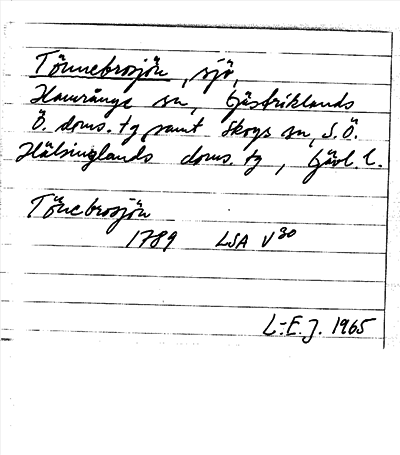 Tönnebrosjön, sjö,
Hamrånge sn, Gästriklands
Ö. doms. tg samt Skogs sn, S.Ö.
Hälsinglands doms. tg, Gävl. l.
Tönebrosjön
1789 LSA V30
L.-E. J. 1965